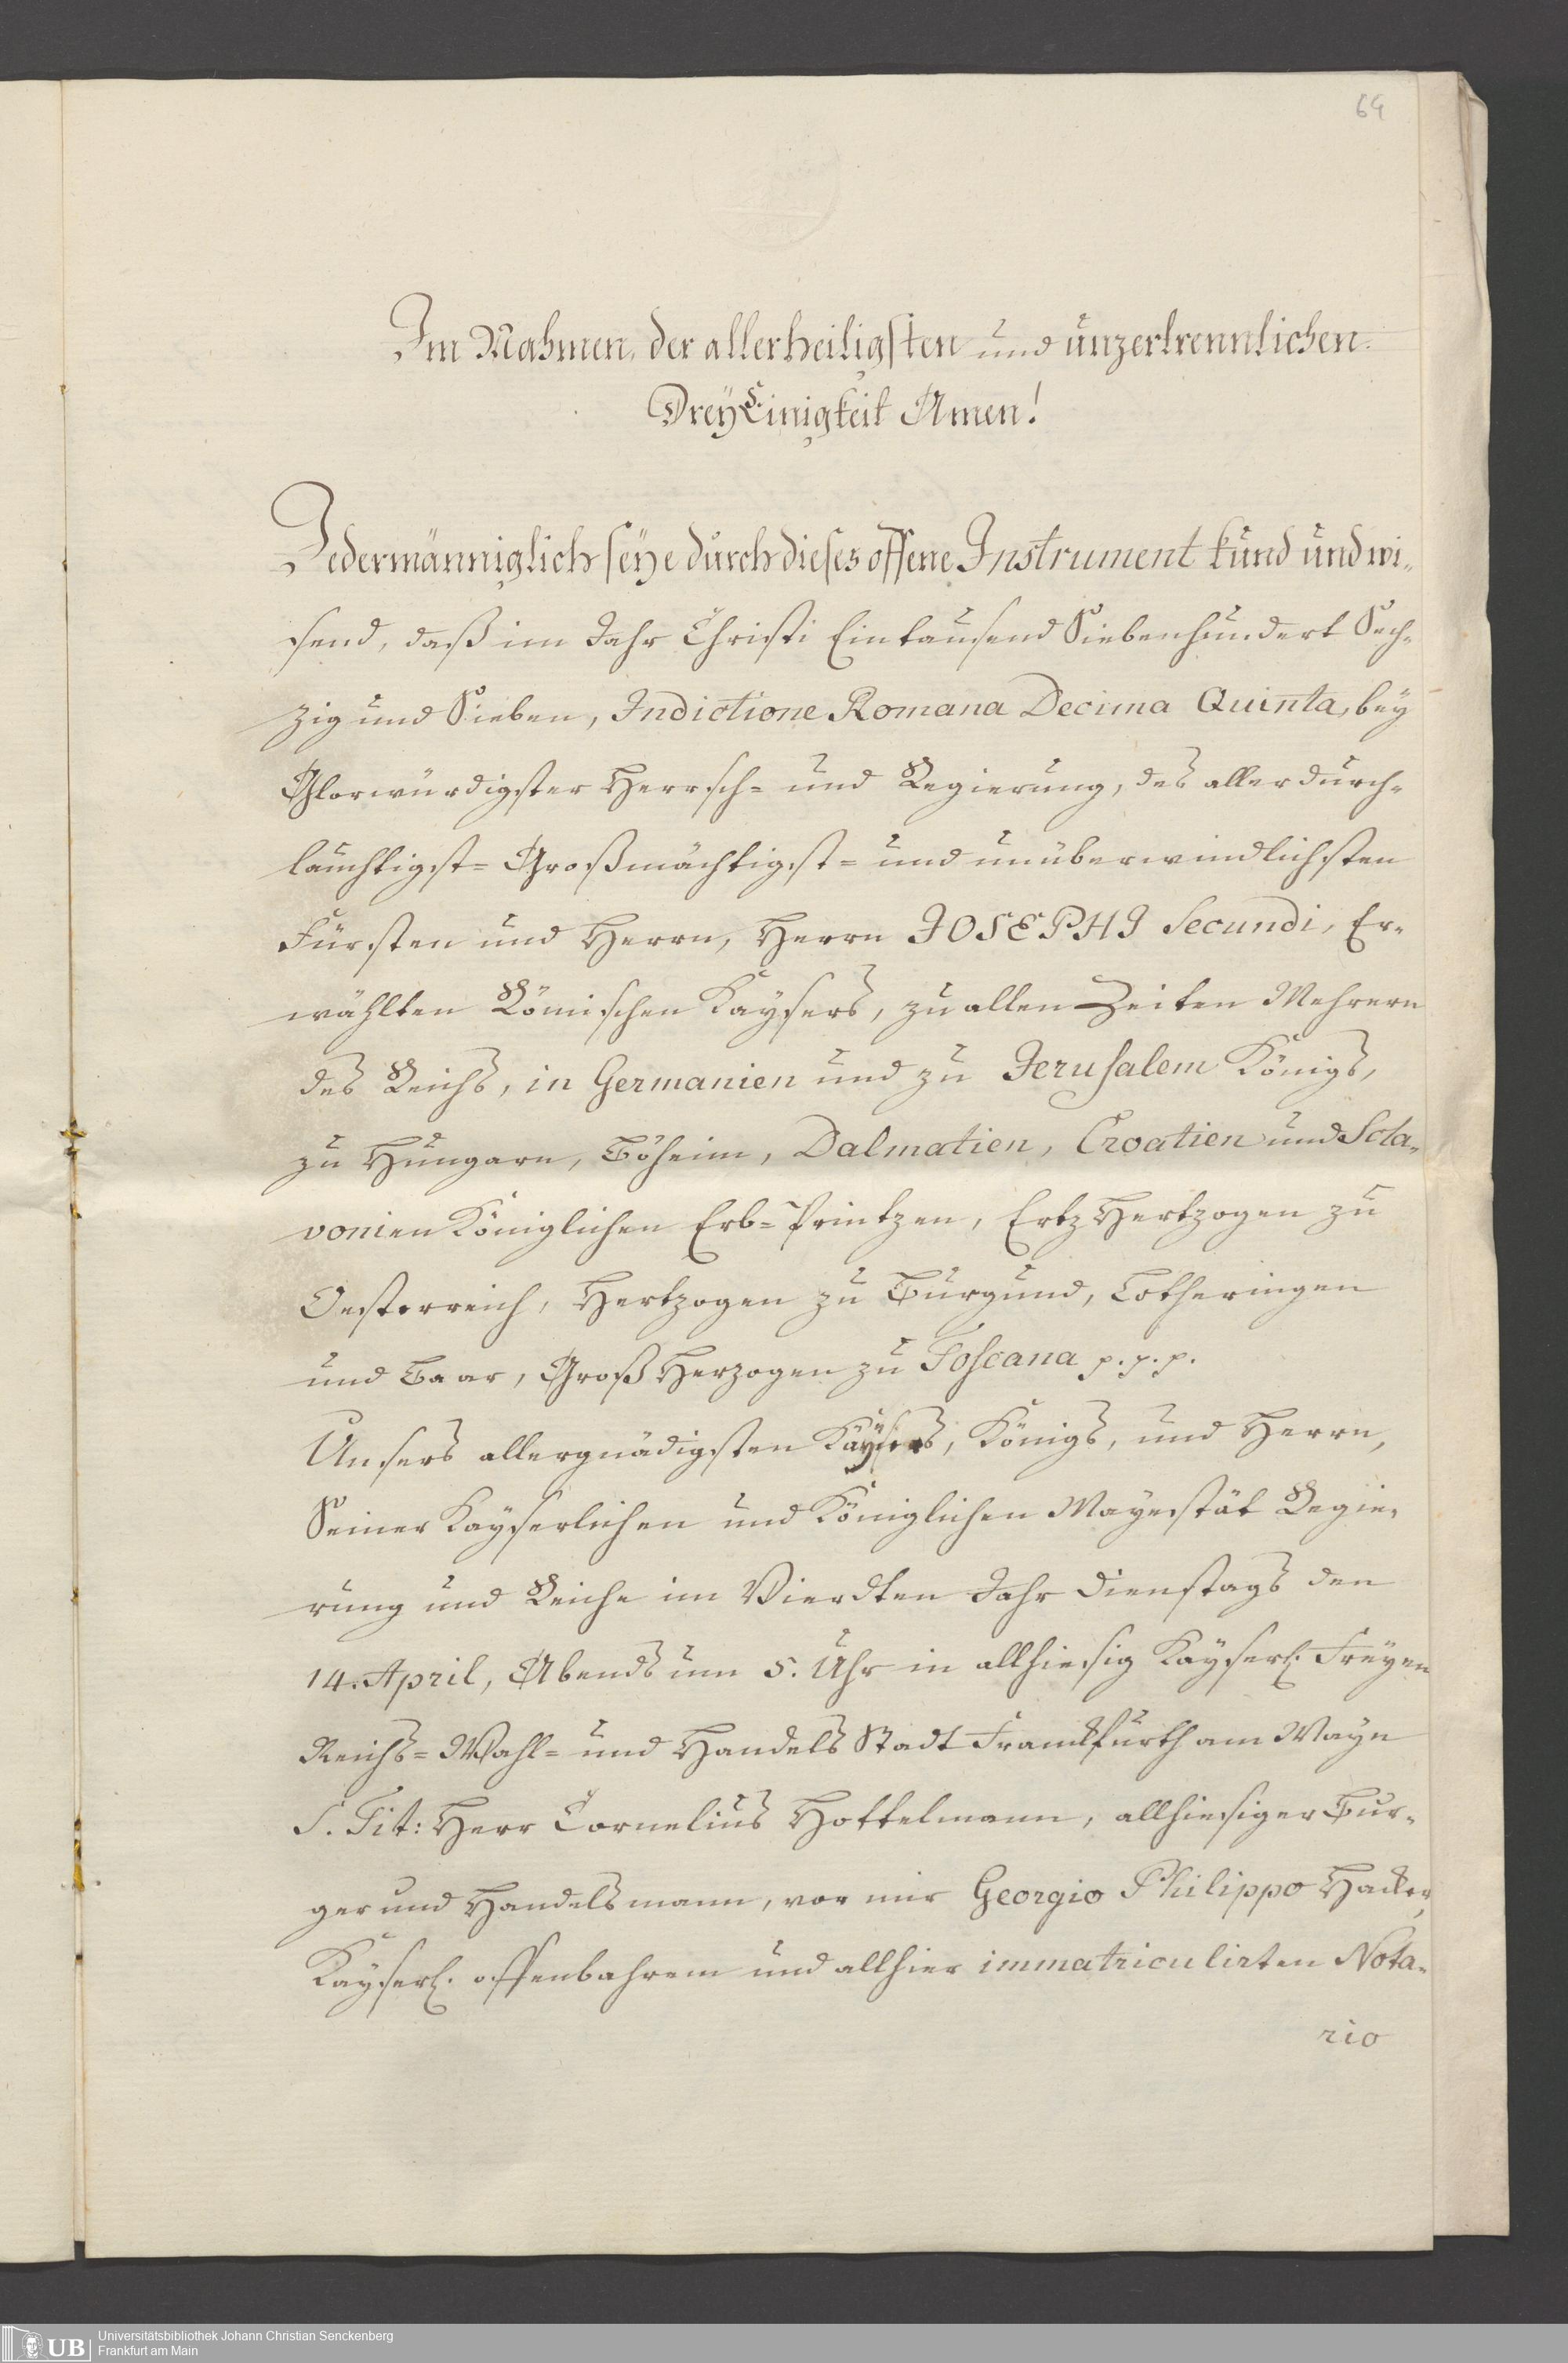 64
Im Nahmen, der allerheiligsten und unzertrennlichen
DreyEinigkeit Amen!
Jedermänniglich seye durch dieses offene Instrument kund und wi-
send, daß im Jahr Christi Eintausend Siebenhundert Sech-
zig und Sieben, Indictione Romana Decima Quinta, bey
Glorwürdigster Herrsch- und Regierung, des allerdurch-
lauchtigst- Großmächtigst- und unüberwindlichsten
Fürsten und Herrn, Herrn JOSEPHI Secundi, Er-
wählten Römischen Kaysers, zu allen Zeiten Mehrern
des Reichs, in Germanien und zu Jerusalem Königs,
zu Hungarn, Böheim, Dalmatien, Croatien und Scla-
vonien Königlichen Erb-Printzen, Ertz Hertzogen zu
Oesterreich, Hertzogen zu Burgund, Lotheringen
und Baar, Groß Herzogen zu Toscana p. p. p.
Unsers allergnädigsten Kaysers, Königs, und Herrn,
Seiner Kayserlichen und Königlichen Mayestät Regie-
rung und Reiche im Vierdten Jahr Dienstags den
14. April, Abends um 5. Uhr in allhiesig Kayserl. Freyen
Reichs- Wahl- und Handels Stadt Franckfurth am Mayn
S. Tit: Herr Cornelius Hottelmann, allhiesiger Bur-
ger und Handelsmann, vor mir Georgio Philippo Hacker,
Kayserl. offenbahrem und allhier immatriculirten Nota-
rio
UB
Universitätsbibliothek Johann Christian Senckenberg
Frankfurt am Main